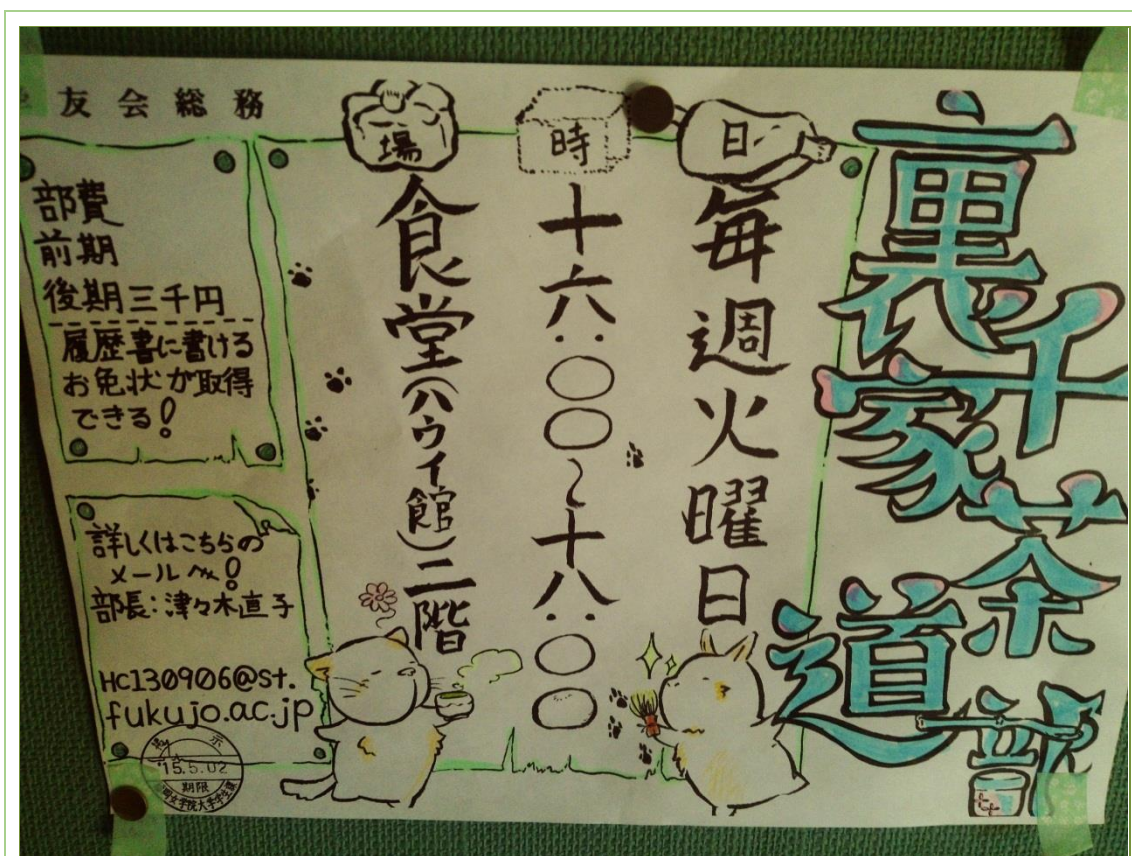 裏千家茶道部
日
毎週火曜日
時
十六:〇〇~十八:〇〇
場
食堂(ハウイ館)二階
友会総務
部費
前期
後期三千円
履歴書に書ける
お免状が取得
できる!
詳しくはこちらの
メールへ!
部長:津々木直子
HC130906@st.
fukujo.ac.jp
示
'15.5.02
期限
女学院大学学生課